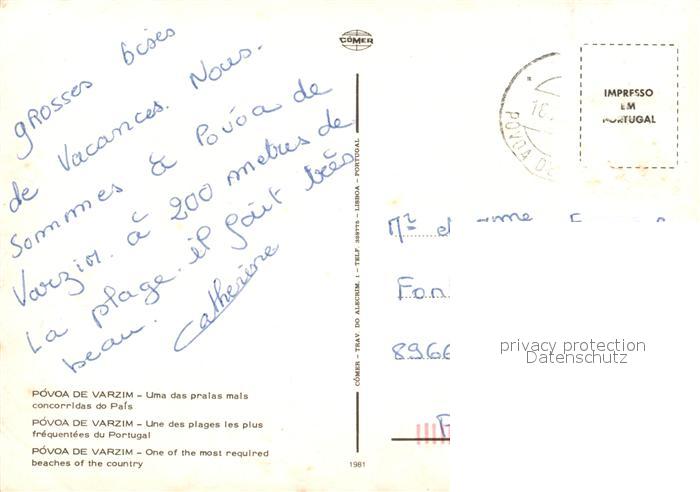 grosses bises
de Vacances. Nous.
Sommes à Povóa de
Varzim. à 200 metres de
La plage. il fait très
beau. Catherine
CÓMER
CÓMER – TRAV. DO ALECRIM, 1 – TELF. 328775 – LISBOA – PORTUGAL
PÓVOA DE
IMPRESSO
EM
PORTUGAL
8966
privacy protection
Datenschutz
PÓVOA DE VARZIM – Uma das praias mais
concorridas do País
PÓVOA DE VARZIM – Une des plages les plus
fréquentées du Portugal
PÓVOA DE VARZIM – One of the most required
beaches of the country
1981